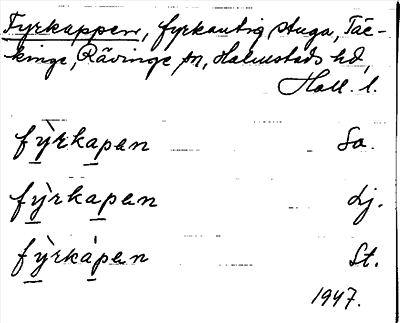 Fyrkappen, fyrkantig stuga, Täc-
kinge, Rävinge sn, Halmstads hd,
Hall. l.
fỳrkapen Sa.
fỳrkapen Lj.
fỳrkápen St.
1947.